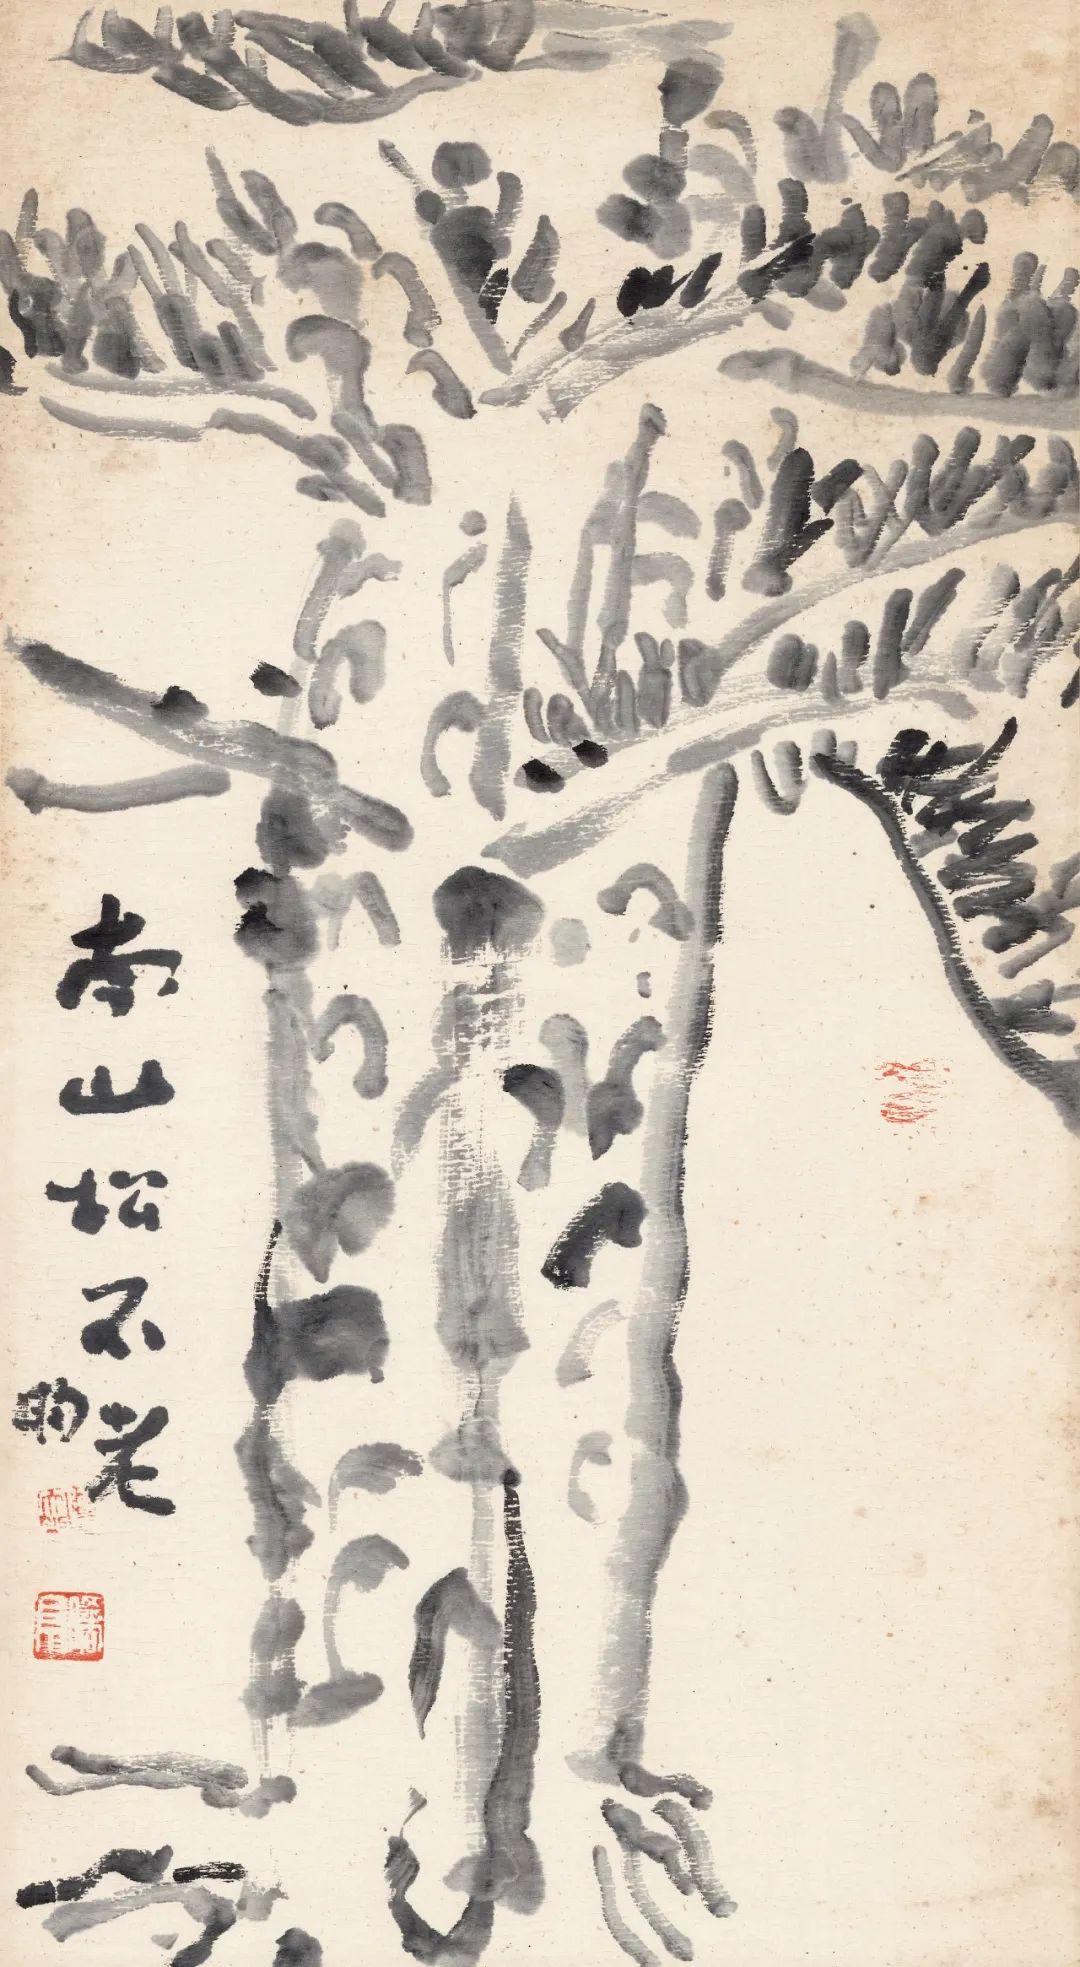 南山松不老